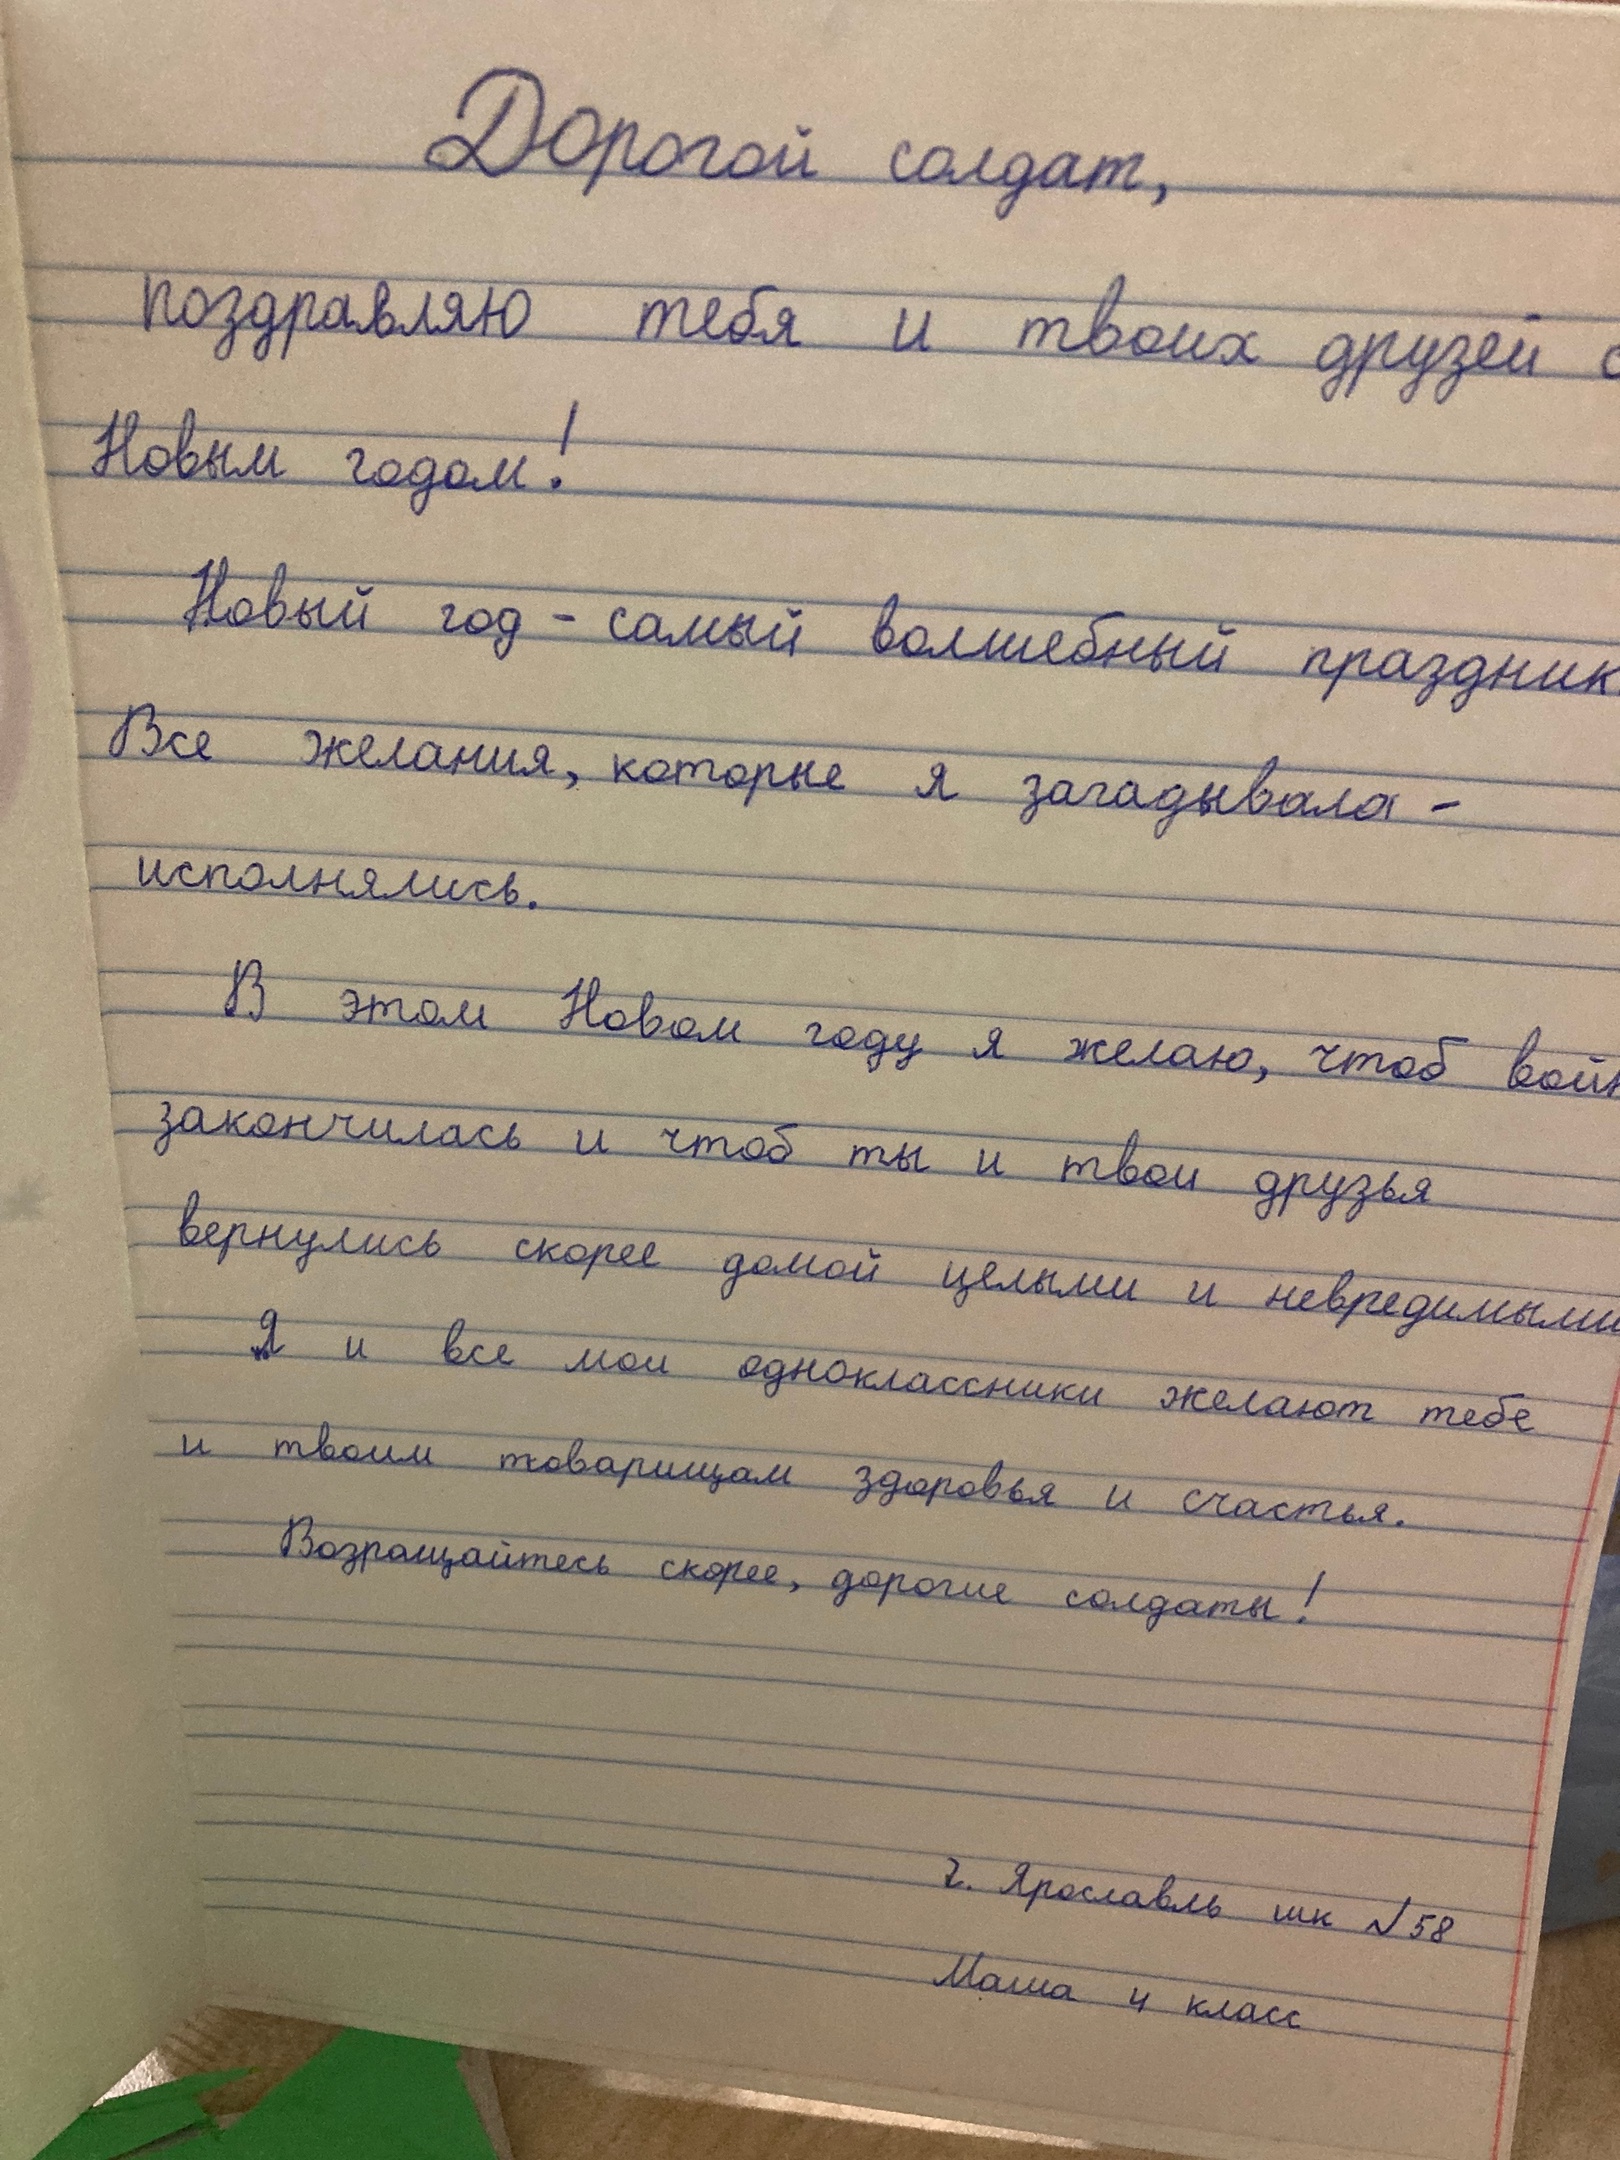 Дорогой солдат,
поздравляю тебя и твоих друзей с
Новым годом!
Новый год - самый волшебный праздник
Все желания, которые я загадывала -
исполнялись.
В этом Новом году я желаю, чтоб войн
закончилась и чтоб ты и твои друзья
вернулись скорее домой целыми и невредимыми
Я и все мои одноклассники желают тебе
и твоим товарищам здоровья и счастья.
Возращайтесь скорее, дорогие солдаты!
г. Ярославль шк №58
Маша 4 класс